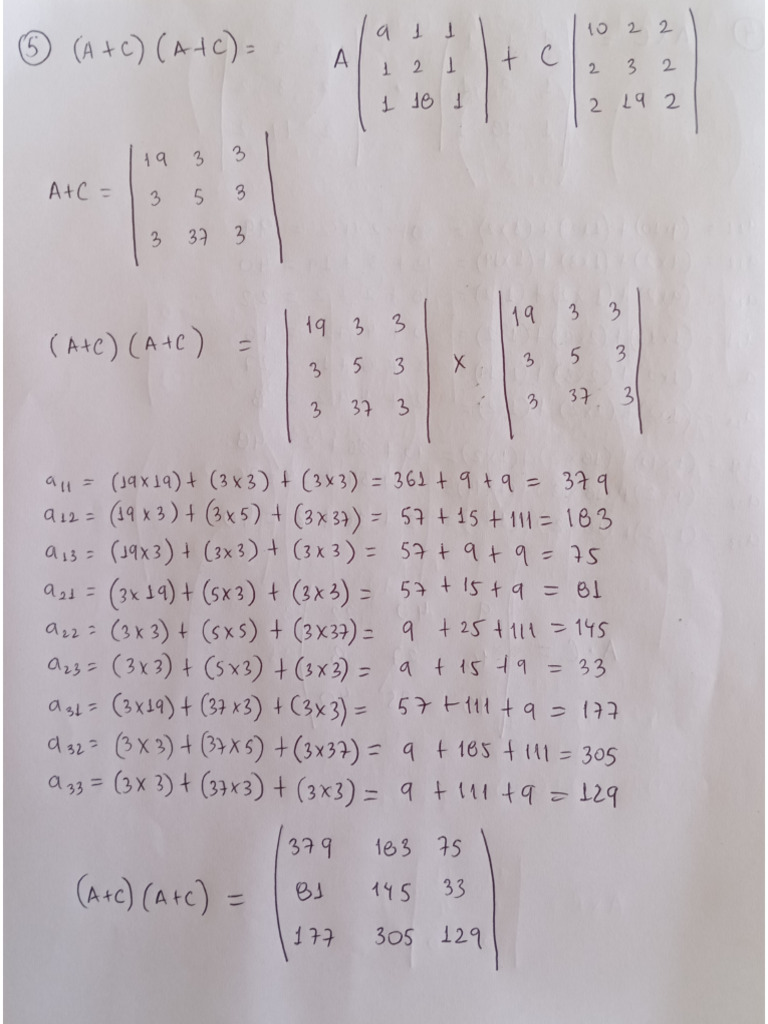 5 (A+C)(A+C) = A | 9 1 1 | + C | 10 2 2 |
| 1 2 1 | | 2 3 2 |
| 1 18 1 | | 2 19 2 |
A+C = | 19 3 3 |
| 3 5 3 |
| 3 37 3 |
(A+C)(A+C) = | 19 3 3 | x | 19 3 3 |
| 3 5 3 | | 3 5 3 |
| 3 37 3 | | 3 37 3 |
a11 = (19x19) + (3x3) + (3x3) = 361 + 9 + 9 = 379
a12 = (19x3) + (3x5) + (3x37) = 57 + 15 + 111 = 183
a13 = (19x3) + (3x3) + (3x3) = 57 + 9 + 9 = 75
a21 = (3x19) + (5x3) + (3x3) = 57 + 15 + 9 = 81
a22 = (3x3) + (5x5) + (3x37) = 9 + 25 + 111 = 145
a23 = (3x3) + (5x3) + (3x3) = 9 + 15 + 9 = 33
a31 = (3x19) + (37x3) + (3x3) = 57 + 111 + 9 = 177
a32 = (3x3) + (37x5) + (3x37) = 9 + 185 + 111 = 305
a33 = (3x3) + (37x3) + (3x3) = 9 + 111 + 9 = 129
(A+C)(A+C) = | 379 183 75 |
| 81 145 33 |
| 177 305 129 |